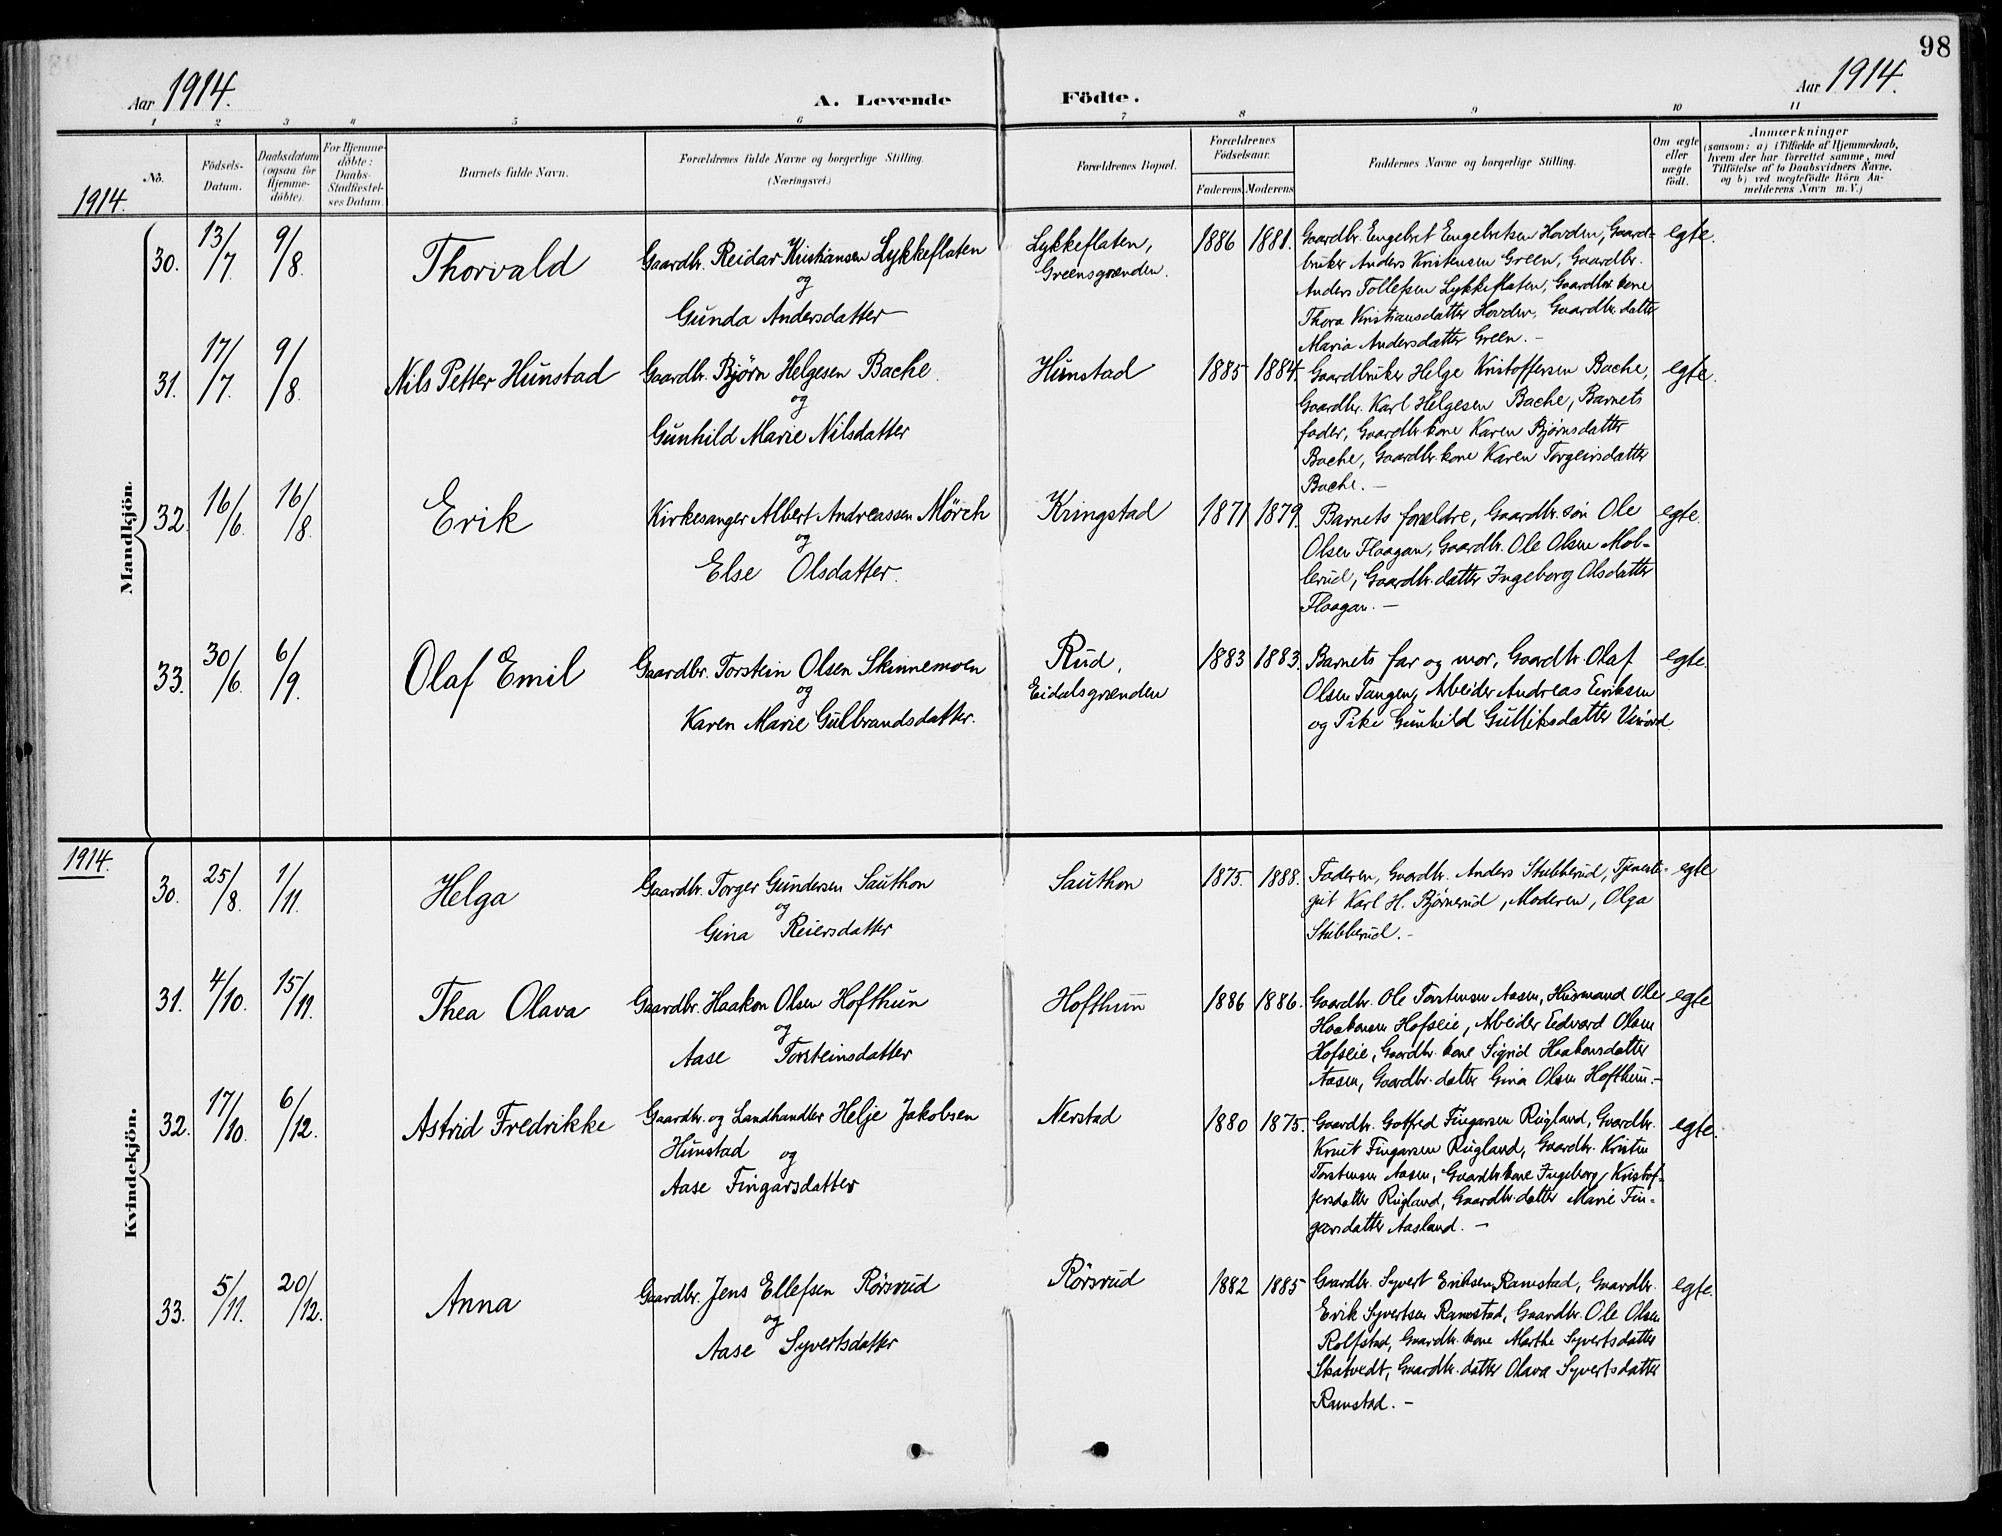 98
Aar 1914.
A. Levende Födte.
Aar 1914.
1 2 3 4 5 6 7 8 9 10 11
No.
Födsels-
Datum.
Daabsdatum
(ogsaa for
Hjemme-
döbte).
For Hjemme-
döbte:
Daabs-
Stadfæstel-
ses Datum.
Barnets fulde Navn.
Forældrenes fulde Navne og borgerlige Stilling.
(Næringsvei.)
Forældrenes Bopæl.
Forældrenes
Födselsaar.
Faderens Moderens
Faddernes Navne og borgerlige Stilling.
Om ægte
eller
uægte
født.
Anmærkninger
(saasom: a) i Tilfælde af Hjemmedaab,
hvem der har forrettet samme, med
Tilföielse af to Daabsvidners Navne,
og b) ved uægtefödte Börn An-
melderens Navn m. V.)
1914.
Mandkjön.
30. 13/7 9/8. Thorvald
Gaardbr. Reidar Kristiansen Lykkeflaten
og
Gunda Andersdatter
Lykkeflaten,
Greensgrænden.
1886 1881.
Gaardbr. Engebret Engebretsen Hovden, Gaard-
bruker Anders Kristensen Green, Gaardbr.
Anders Tollefsen Lykkeflaten, Gaardbr. kone
Thora Kristiansdatter Hovden, Gaardbr. datter
Maria Andersdatter Green. –
egte.
31. 17/7. 9/8. Nils Petter Hunstad
Gaardbr. Bjørn Helgesen Bache
og
Gunhild Marie Nilsdatter
Hunstad
1885 1884.
Gaardbruker Helge Kristoffersen Bache,
Gaardbr. Karl Helgesen Bache, Barnets
fader, Gaardbr. kone Karen Bjørnsdatter
Bache, Gaardbr. kone Karen Torgeirsdatter
Bache. –
egte.
32. 16/6. 16/8. Erik
Kirkesanger Albert Andreassen Mörch
og
Else Olsdatter.
Kringstad
1871 1879.
Barnets forældre, Gaardbr. søn Ole
Olsen Flaagan, Gaardbr. Ole Olsen Mob-
lerud, Gaardbr. datter Ingeborg Olsdatter
Flaagan. –
egte.
33. 30/6. 6/9. Olaf Emil
Gaardbr. Torstein Olsen Skinnemoen
og
Karen Marie Gulbrandsdatter.
Rud,
Eidalsgrænden
1883 1883.
Barnets far og mor, Gaardbr. Olaf
Olsen Tangen, Arbeider Andreas Eeriksen
og Pike Gunhild Gulliksdatter
egte.
1914.
Kvindekjön.
30. 25/8. 1/11. Helga
Gaardbr. Torger Gundersen Sauthon
og
Gina Reiersdatter
Sauthon
1875. 1888.
Faderen, Gaardbr. Anders Stubberud, Tjeneste-
gut Karl H. Bjørnerud, Moderen, Olga
Stubberud. –
egte
31. 4/10. 15/11. Thea Olava
Gaardbr. Haakon Olsen Hofthun
og
Aase Torsteinsdatter
Hofthun
1886 1886.
Gaardbr. Ole Torstensen Aasen, Husmand Ole
Haakonsen Hofseie, Arbeider Edvard Olsen
Hofseie, Gaardbr. kone Sigrid Haakonsdatter
Aasen, Gaardbr. datter Gina Olsen Hofthun. –
egte
32. 17/10. 6/12. Astrid Fredrikke
Gaardbr. og Landhandler Helje Jakobsen
Hunstad og
Aase Fingarsdatter
Nerstad
1880 1875.
Gaardbr. Gotfred Fingarsen Rugland, Gaardbr.
Knut Fingarsen Rugland, Gaardbr. Kristen
Torstensen Aasen, Gaardbr. kone Ingeborg Kristof-
fersdatter Rugland, Gaardbr. datter Marie Fin-
garsdatter Aasland. –
egte.
33. 5/11. 20/12. Anna
Gaardbr. Jens Ellefsen Rørsrud
og
Aase Syvertsdatter
Rørsrud
1882 1885
Gaardbr. Syvert Eriksen Ramstad, Gaardbr.
Erik Syvertsen Ramstad, Gaardbr. Ole Olsen
Rolfstad, Gaardbr. kone Marthe Syvertsdatter
Skatvedt, Gaardbr. datter Olava Syvertsdatter
Ramstad. –
egte.